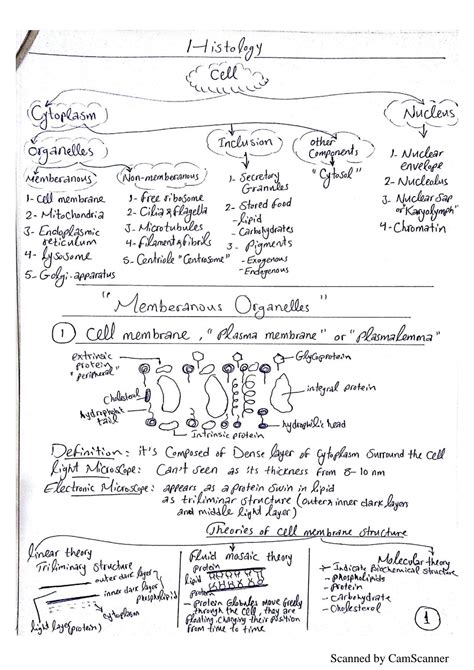 Histology
Cell
Cytoplasm
Nucleus
Organelles
Inclusion
other
Components
"Cytosol"
Memberanous
Non-memberanous
1- Cell membrane
2- Mitochondria
3- Endoplasmic
reticulum
4- Lysosome
5- Golgi-apparatus
1- Free ribosome
2- Cilia & flagella
3- Microtubules
4- Filaments & fibrils
5- Centriole "Centrosome"
1- Secretory
Granules
2- Stored food
-lipid
-Carbohydrates
3- Pigments
-Exogenous
-Endogenous
1- Nuclear
envelope
2- Nucleolus
3- Nuclear Sap
or "Karyolymph"
4- Chromatin
"Memberanous Organelles"
1 Cell membrane, "Plasma membrane" or "Plasmalemma"
extrinsic
protein
"peripheral"
Glycoprotein
Cholesterol
integral protein
hydrophilic head
Intrinsic protein
Definition: it's Composed of Dense layer of Cytoplasm Surround the Cell
Light Microscope: Can't seen as its thickness from 8-10 nm
Electronic Microscope: appears as a protein Swin in lipid
as triliminar structure (outer & inner dark layers
and middle light layer)
Theories of Cell membrane Structure
linear theory
Triliminary Structure
outer dark layer
inner dark layer
phospholipid
cytoplasm
light layer (protein)
Fluid mosaic theory
protein
lipid
protein
- protein Globules move freely
through the cell, they are
floating changing their position
from time to time
Molecular theory
- Indicate Biochemical Structure
- phospholipids
- Protein
- Carbohydrate
- Cholesterol
1
Scanned by CamScanner